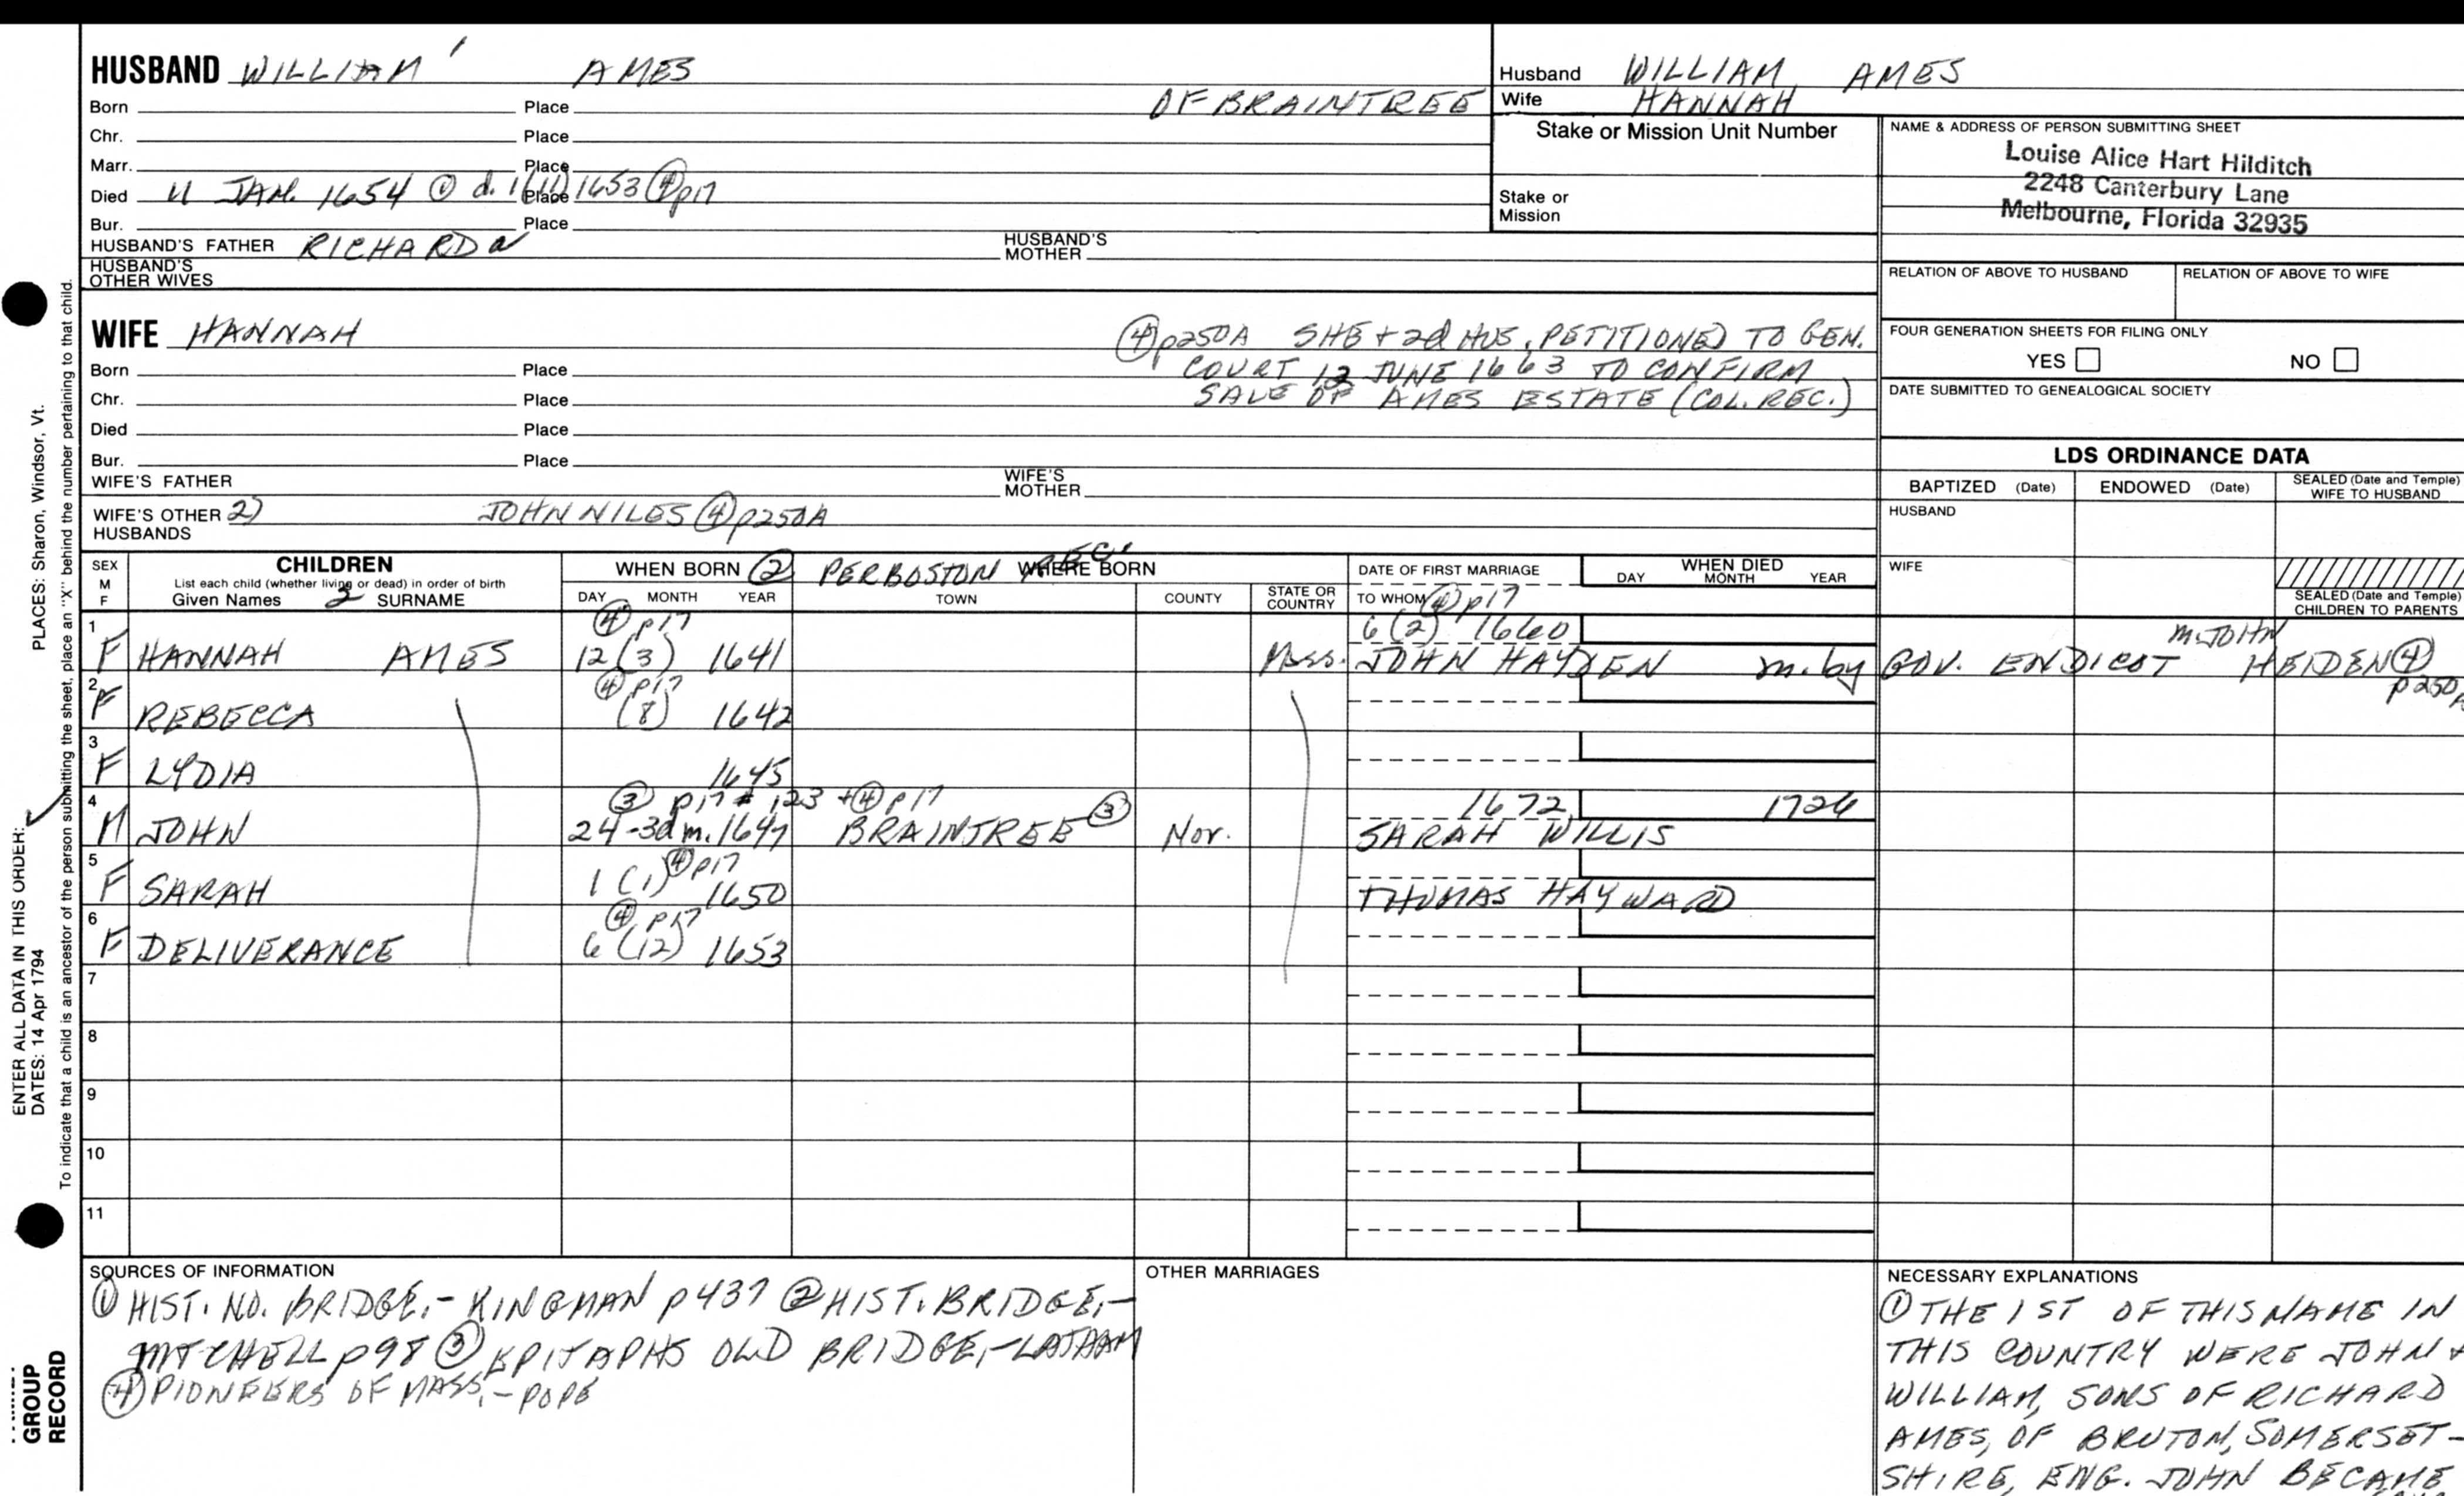 HUSBAND WILLIAM ' AMES
Born Place OF BRAINTREE
Chr. Place
Marr. Place
Died 11 JAN. 1654 ① d. 1(11)1653 ④p17 Place
Bur. Place
HUSBAND'S FATHER RICHARD a HUSBAND'S MOTHER
HUSBAND'S OTHER WIVES
WIFE HANNAH
④p250A SHE + 2d HUS, PETITIONED TO GEN.
COURT 12 JUNE 1663 TO CONFIRM
SALE OF AMES ESTATE (COL. REC.)
Born Place
Chr. Place
Died Place
Bur. Place
WIFE'S FATHER WIFE'S MOTHER
WIFE'S OTHER HUSBANDS 2) JOHN NILES ④p250A
Husband WILLIAM AMES
Wife HANNAH
Stake or Mission Unit Number
Stake or Mission
NAME & ADDRESS OF PERSON SUBMITTING SHEET
Louise Alice Hart Hilditch
2248 Canterbury Lane
Melbourne, Florida 32935
RELATION OF ABOVE TO HUSBAND RELATION OF ABOVE TO WIFE
FOUR GENERATION SHEETS FOR FILING ONLY
YES NO
DATE SUBMITTED TO GENEALOGICAL SOCIETY
LDS ORDINANCE DATA
BAPTIZED (Date) ENDOWED (Date) SEALED (Date and Temple) WIFE TO HUSBAND
HUSBAND
WIFE
SEALED (Date and Temple) CHILDREN TO PARENTS
SEX M F
CHILDREN
List each child (whether living or dead) in order of birth
Given Names 2 SURNAME
WHEN BORN ② PER BOSTON REC. WHERE BORN
DAY MONTH YEAR TOWN COUNTY STATE OR COUNTRY
DATE OF FIRST MARRIAGE
TO WHOM ④p17
WHEN DIED
DAY MONTH YEAR
1 ④p17 6(2) 1660 m. JOHN
F HANNAH AMES 12(3) 1641 Mass. JOHN HAYDEN m. by GOV. ENDICOT HEIDEN ④ p250A
2 ④p17
F REBECCA (8) 1642
3
F LYDIA 1645
4 ③ p17 # 123 + ④ p17 1672 1726
M JOHN 24-3d m. 1647 BRAINTREE ③ Nor. SARAH WILLIS
5 ④p17
F SARAH 1(1) 1650 THOMAS HAYWARD
6 ④ p17
F DELIVERANCE 6(12) 1653
7
8
9
10
11
SOURCES OF INFORMATION
① HIST. NO. BRIDGE.- KINGMAN p437 ② HIST. BRIDGE,-
MITCHELL p98 ③ EPITAPHS OLD BRIDGE,-LATHAM
④ PIONEERS OF MASS.- POPE
OTHER MARRIAGES
NECESSARY EXPLANATIONS
① THE 1ST OF THIS NAME IN
THIS COUNTRY WERE JOHN +
WILLIAM, SONS OF RICHARD
AMES, OF BRUTON, SOMERSET-
SHIRE, ENG. JOHN BECAME
PLACES: Sharon, Windsor, Vt.
To indicate that a child is an ancestor of the person submitting the sheet, place an "X" behind the number pertaining to that child.
ENTER ALL DATA IN THIS ORDER:
DATES: 14 Apr 1794
GROUP
RECORD